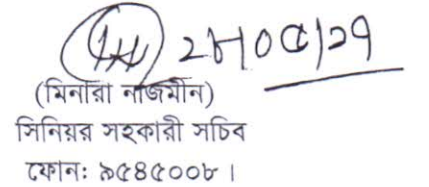 (মিনারা নাজমীন)
সিনিয়র সহকারী সচিব
ফোন: ৯৫৪৫০০৮।